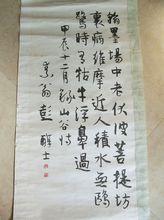 翰墨場中老伏波菩提坊
裏病維摩近人積水無鷗
鷺時有牛浮鼻過
甲辰十二月録山谷詩
素翁彭醇士